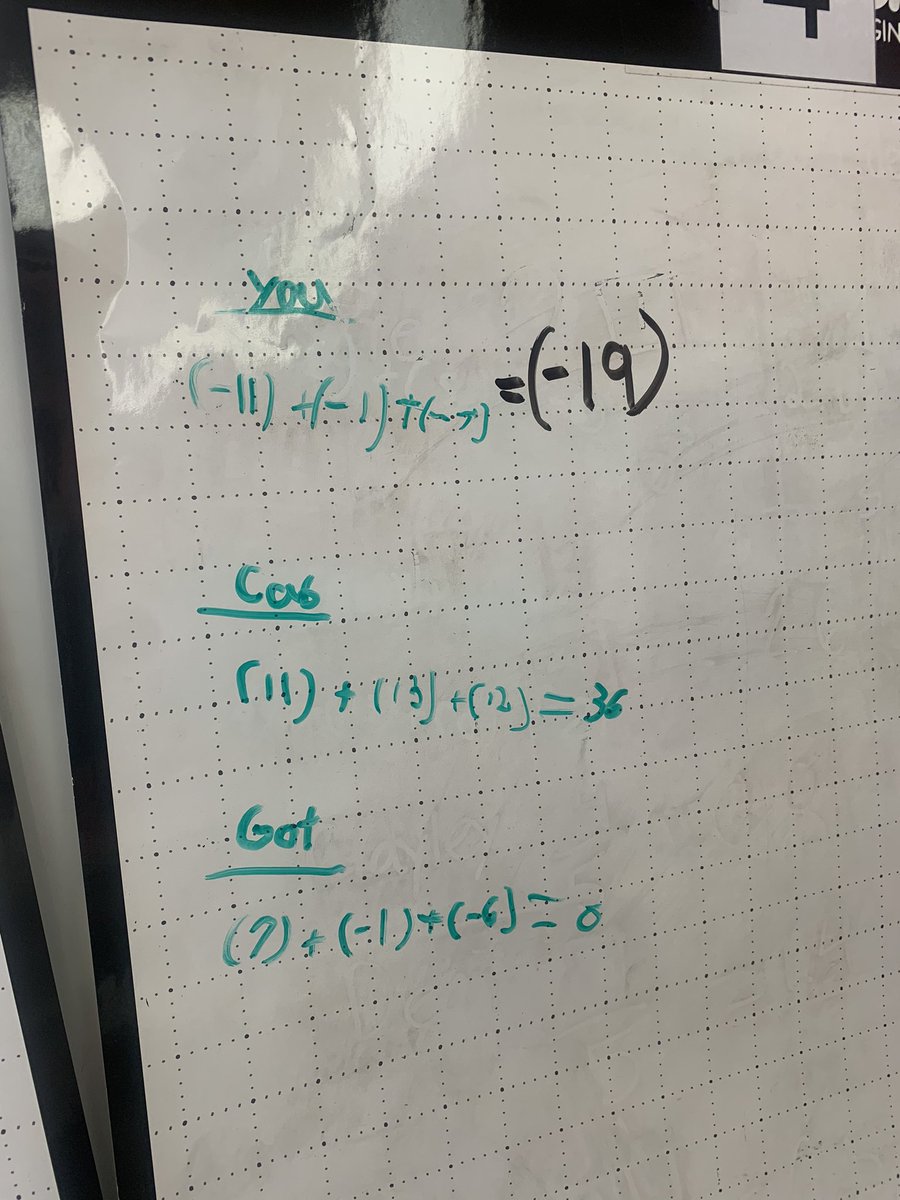 4
GIN
You
(-11) + (-1) + (-7) = (-19)
Cab
(11) + (13) + (12) = 36
Got
(7) + (-1) + (-6) = 0